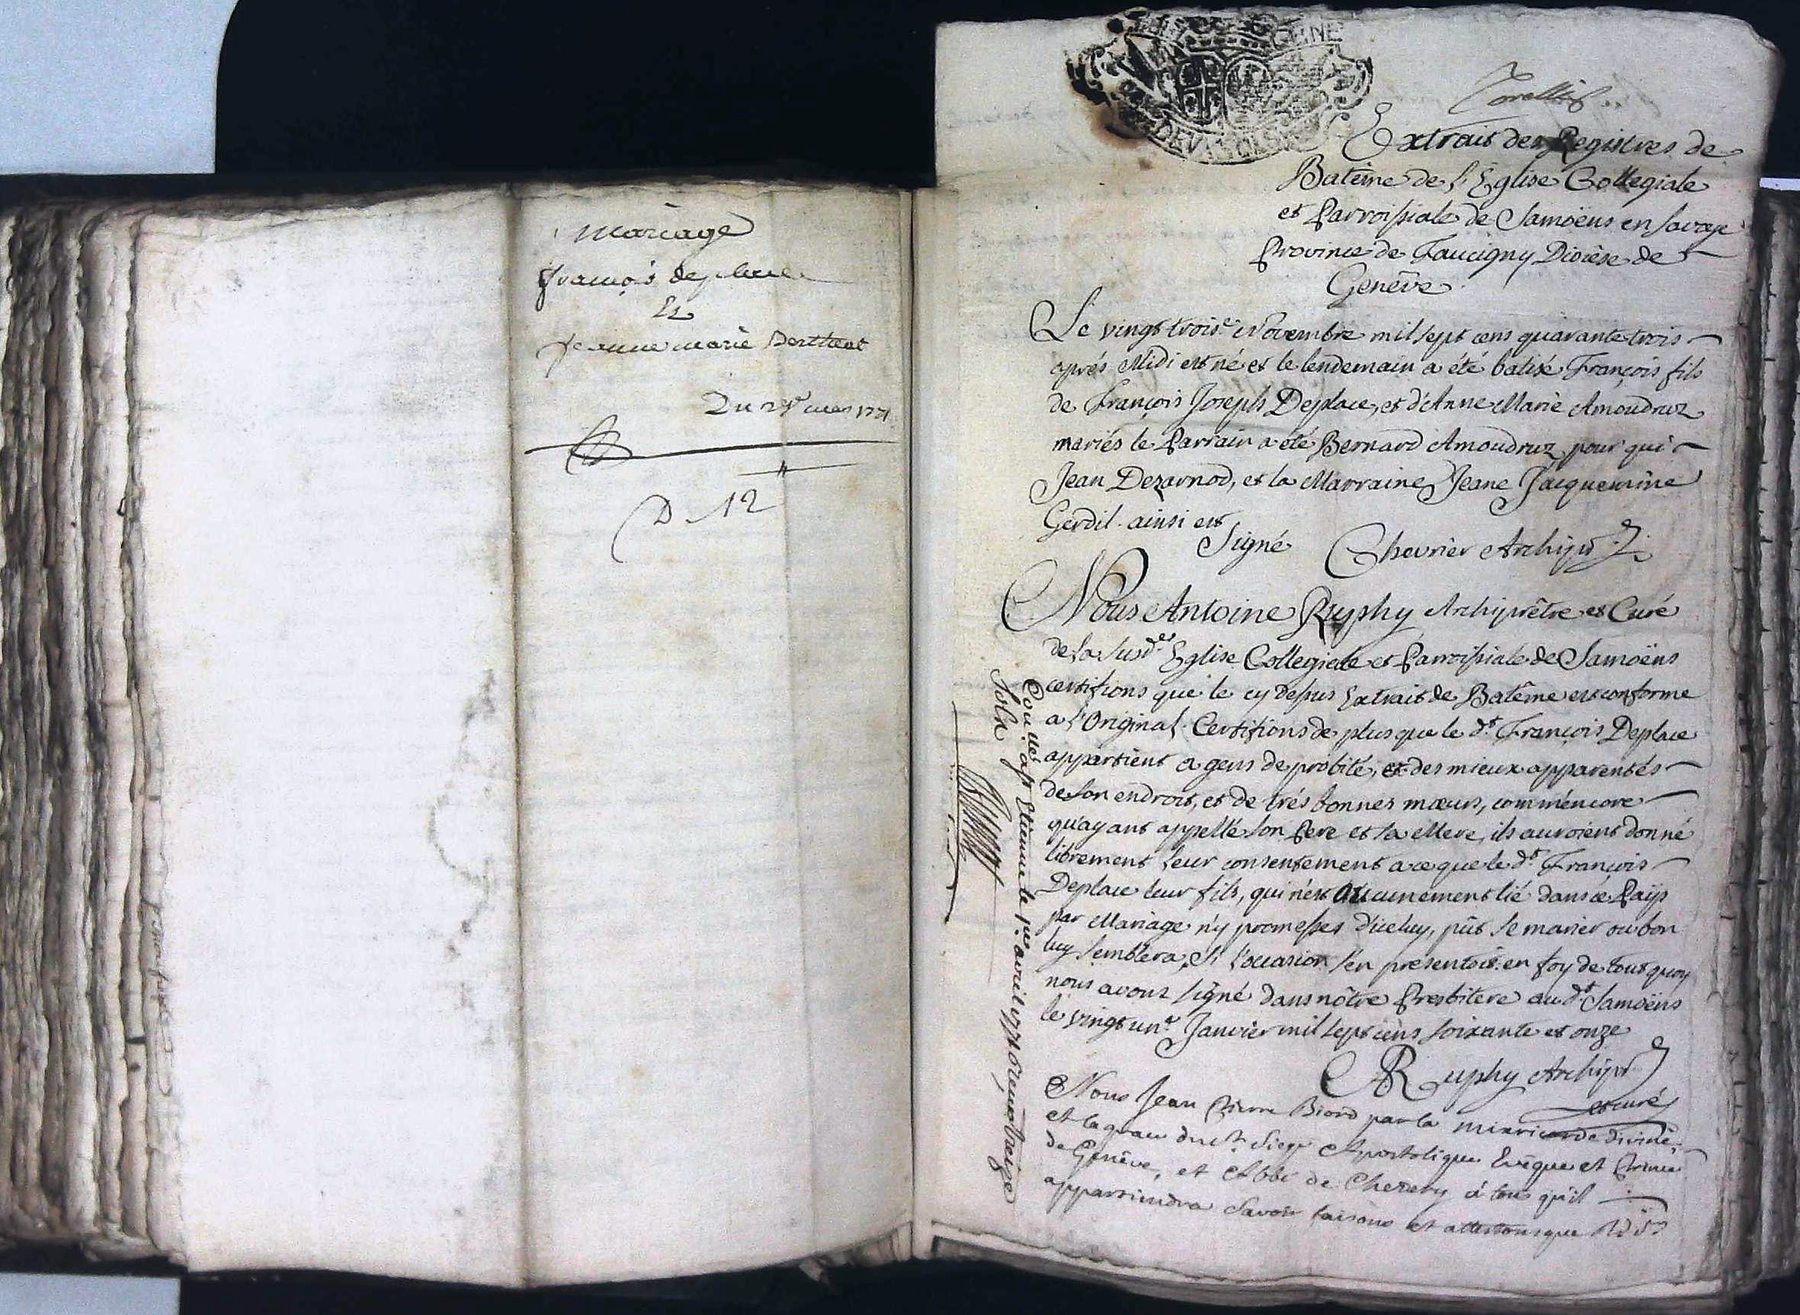 Mariage
françois deplace
Et
Jeanne marie Berthet
Du mars 1771
D 12
Extrait des Registres de
Batême de l'Eglise Collegiale
et Parroissiale de Samoëns en Savoye
Province de Faucigny Diocèse de
Genêve
Le vingt trois.e Novembre mil sept cens quarante trois
aprés Midi est né et le lendemain a été batisé François fils
de François Joseph Deplace, et d'Anne Marie Amoudruz
mariés le Parrain a été Bernard Amoudruz pour qui
Jean Dezarnod, et la Marraine Jeane Jacquemine
Gerdil. ainsi est
Signé Chevrier Archip.r
Nous Antoine Ruphy Archiprêtre et Curé
de la Susd.e Eglise Collegiale et Parroissiale de Samoëns
certifions que le cy dessus Extrait de Batême est conforme
a l'Original. Certifions de plus que le d.t François Deplace
appartient a gens de probité, et des mieux apparentés
de son endroit, et de trés bonnes mœurs, comm'encore
qu'ayant appellé son Pere et sa Mere, ils auroient donné
librement leur consentement a ce que le d.t François
Deplace leur fils, qui n'est aucunement lié dans ce Païs
par Mariage n'y promesses d'iceluy, pût se marier ou bon
luy semblera, si l'occasion s'en presentoit. en foy de tout quoy
nous avons signé dans nôtre Presbitere au d.t Samoëns
le vingt un.e Janvier mil sept cens soixante et onze
Ruphy Archip.r
et curé
Nous Jean Pierre Biord par la misericorde divine
et la grace du St. Siege Apostolique Evêque et Prince
de Genêve, et Abbé de Chezery à tous qu'il
appartiendra savoir faisons et attestons que R.d S.r
Con.lé a St Etienne le p.er avril 1771 Reçu treize
Sols